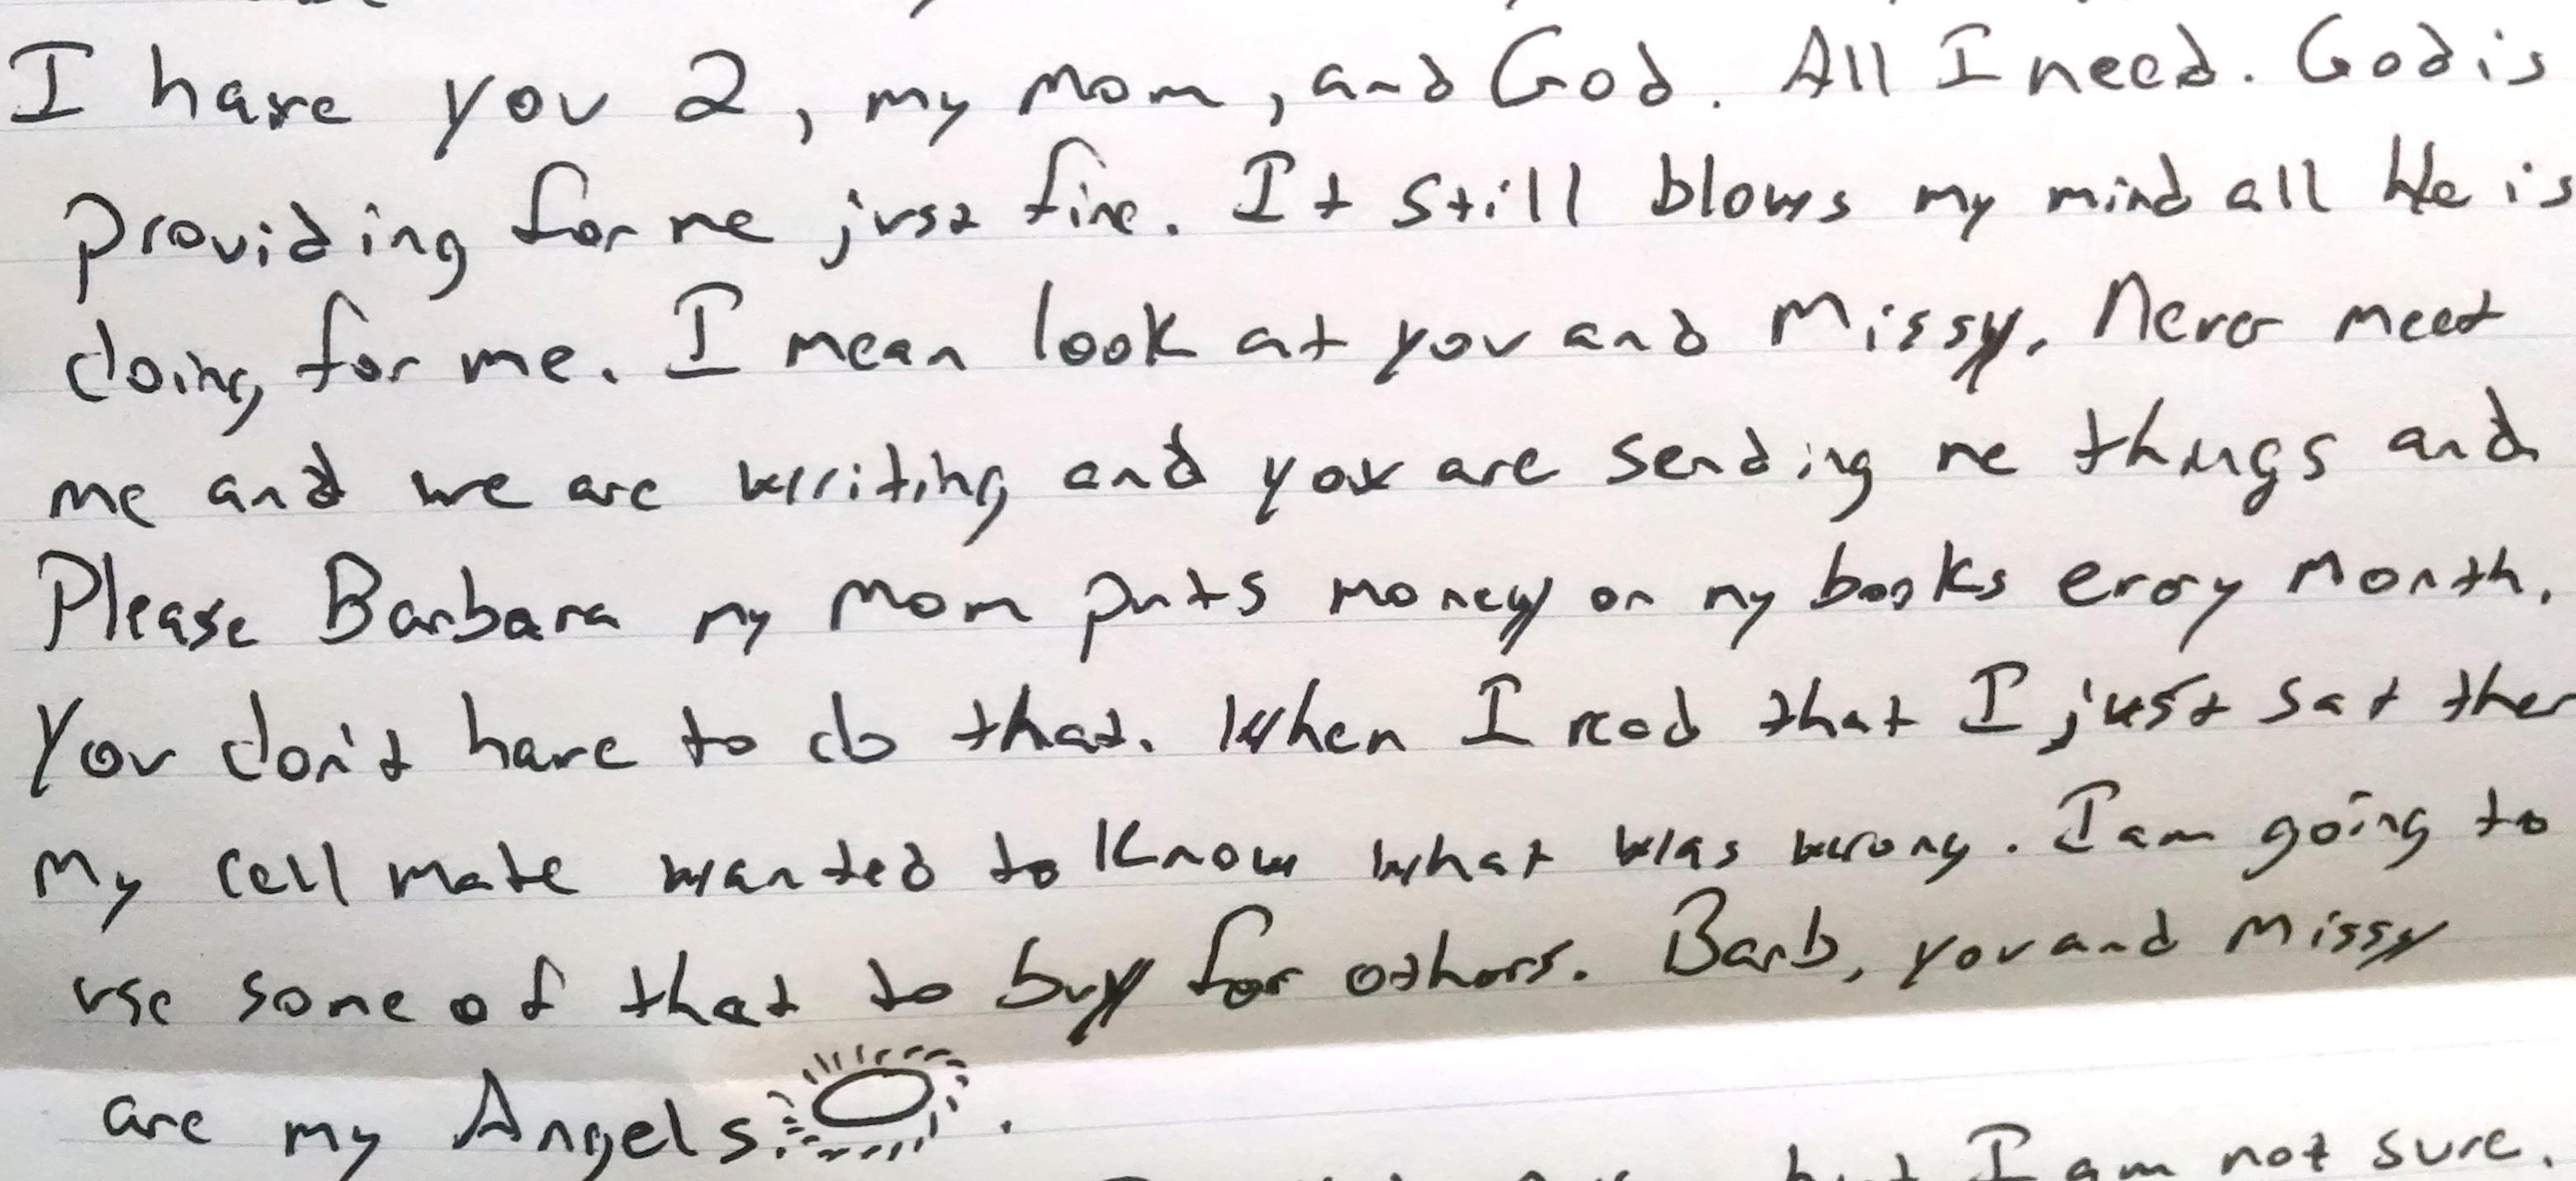 I have you 2, my Mom, and God. All I need. God is
providing for me just fine. It still blows my mind all He is
doing for me. I mean look at you and Missy. Never meet
me and we are writing and you are sending me things and
Please Barbara my Mom puts money on my books every Month.
You don't have to do that. When I read that I just sat ther
My cell mate wanted to Know what was wrong. I am going to
use some of that to buy for others. Barb, you and Missy
are my Angels.
but I am not sure.